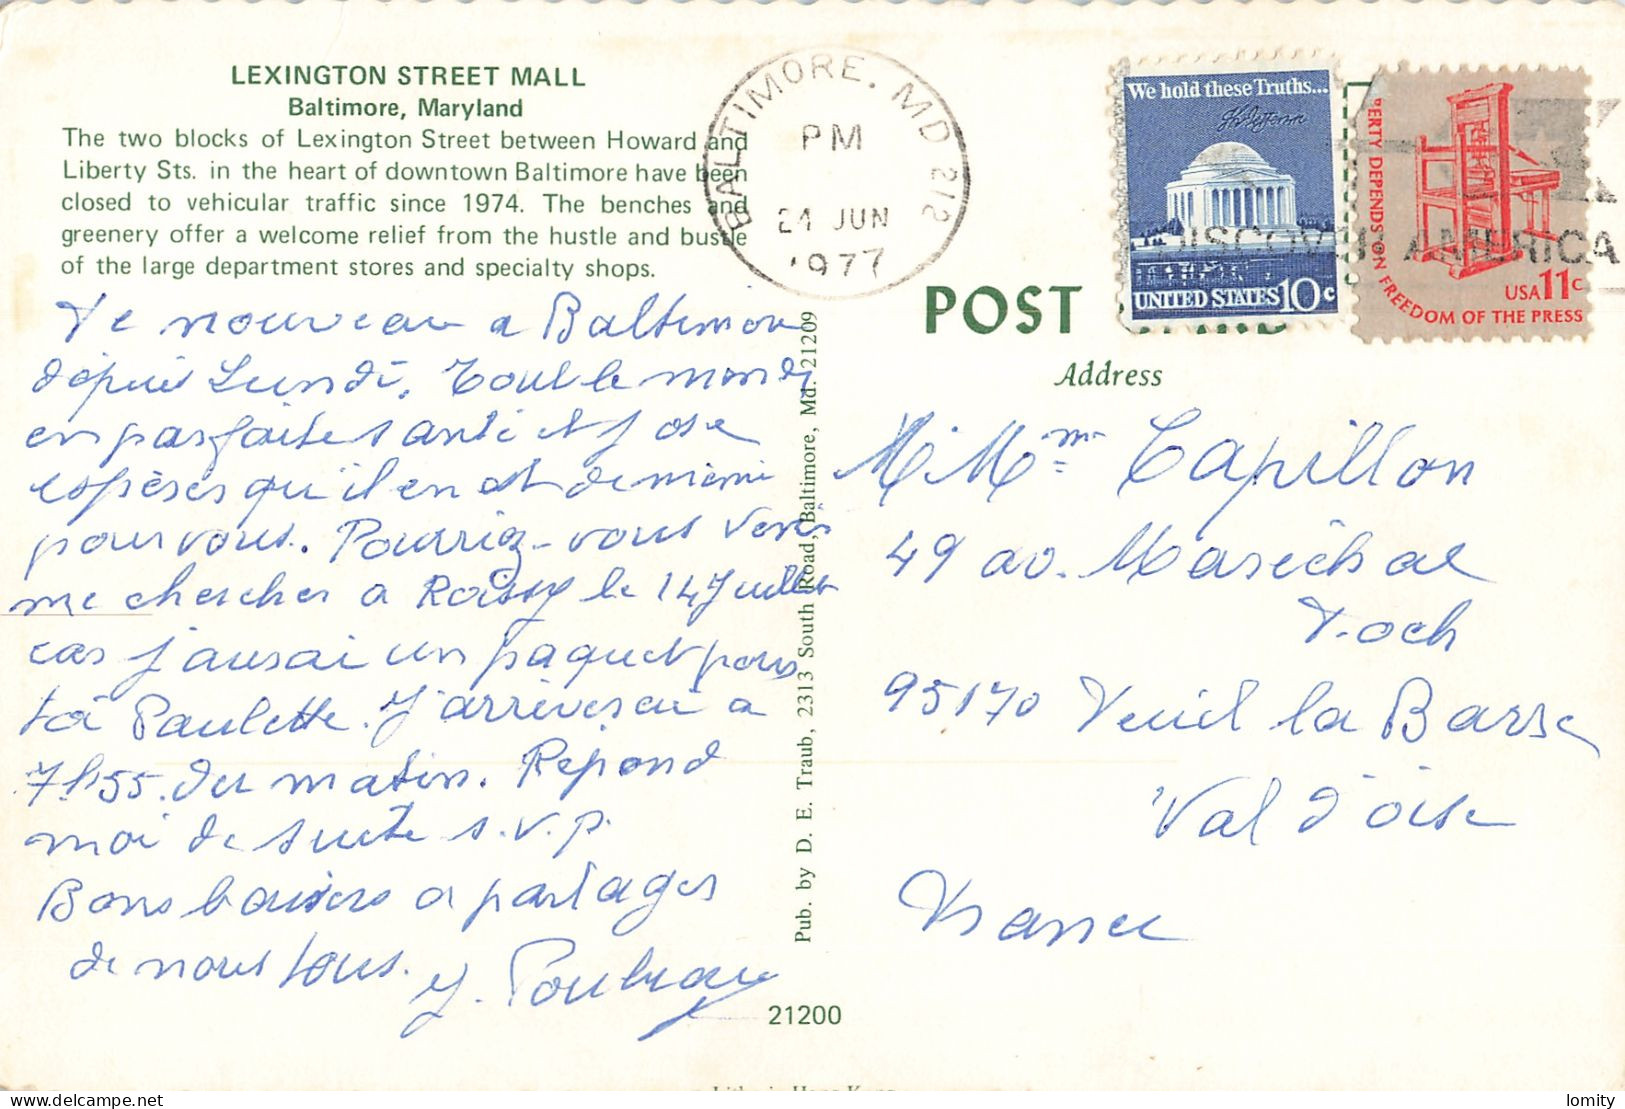 LEXINGTON STREET MALL
Baltimore, Maryland
The two blocks of Lexington Street between Howard and
Liberty Sts. in the heart of downtown Baltimore have been
closed to vehicular traffic since 1974. The benches and
greenery offer a welcome relief from the hustle and bustle
of the large department stores and specialty shops.
BALTIMORE, MD 212
PM
21 JUN
1977
We hold these Truths...
UNITED STATES 10c
LIBERTY DEPENDS ON FREEDOM OF THE PRESS
USA 11c
DISCOVER AMERICA
POST CARD
Address
nouveau a Baltimore
depuis Lundi. Tout le monde
en parfaite santé et j ose
espèrer qu'il en est de même
pour vous. Pourriez-vous venir
me chercher a Roissy le 14 Juillet
car j'aurai un paquet pour
toi Paulette. J'arriverai a
7h55 du matin. Répond
moi de suite s.v.p.
Bons baisers a partager
de nous tous.
M. Mme Capillon
49 av. Maréchal
Foch
95170 Deuil la Barre
Val d'oise
France
Pub. by D. E. Traub, 2313 South Road, Baltimore, Md. 21209
21200
lomity